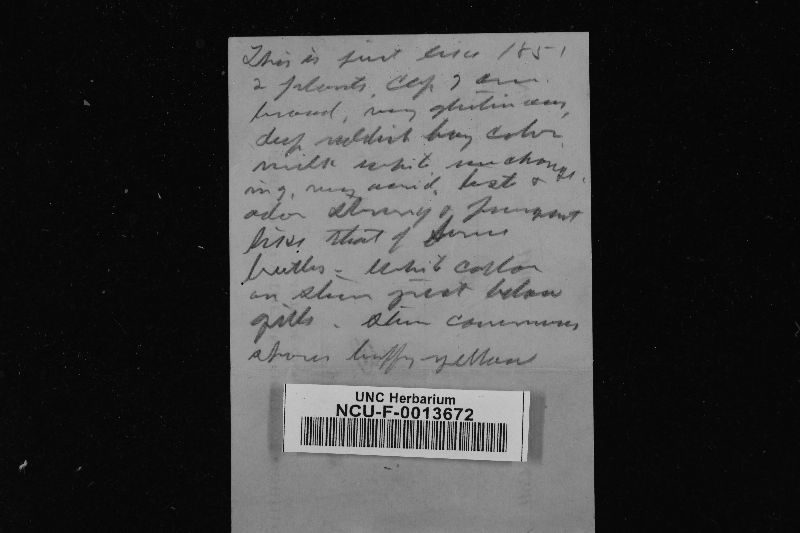 This is just like 1851
2 plants. Cap 7 cm.
broad, very glutinous,
deep reddish bay color
milk white unchang-
ing, very acid. taste &
odor strong & pungent
like that of some
beetles - white collar
on stem just below
gills. Stem cavernous
spores buffy-yellow
UNC Herbarium
NCU-F-0013672